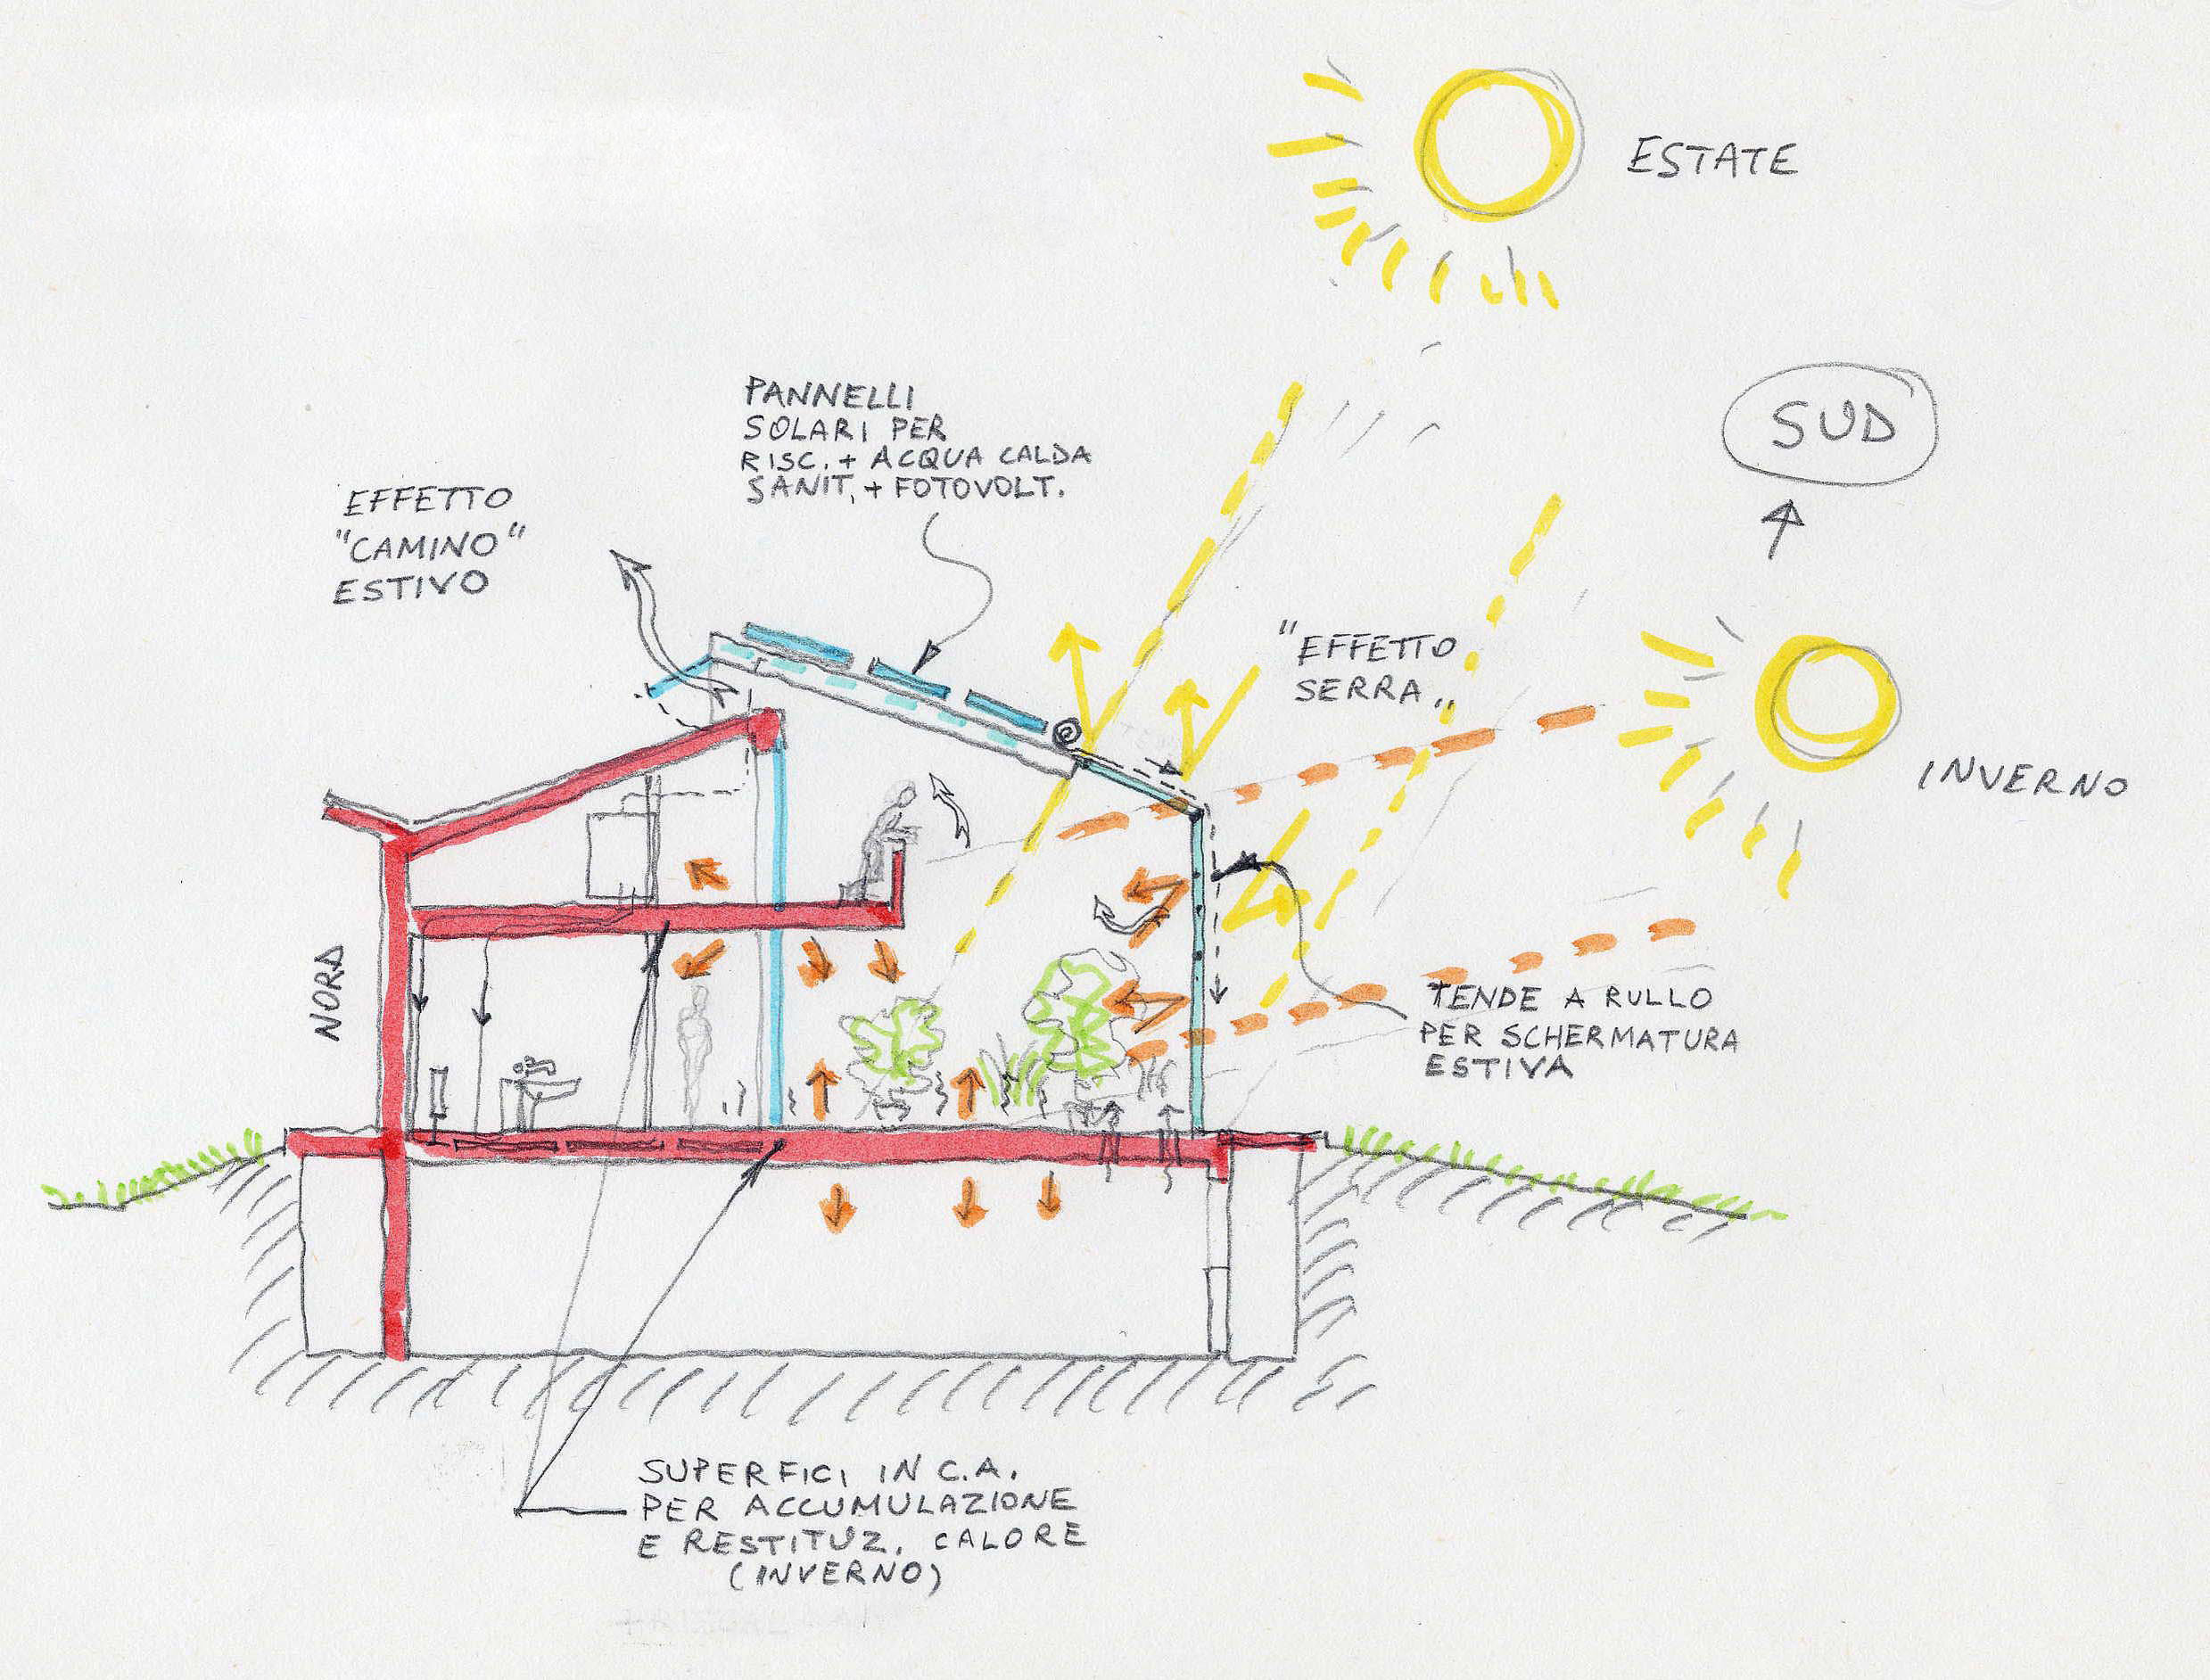 ESTATE
SUD
PANNELLI
SOLARI PER
RISC. + ACQUA CALDA
SANIT. + FOTOVOLT.
EFFETTO
"CAMINO"
ESTIVO
"EFFETTO
SERRA"
INVERNO
NORD
TENDE A RULLO
PER SCHERMATURA
ESTIVA
SUPERFICI IN C.A.
PER ACCUMULAZIONE
E RESTITUZ. CALORE
(INVERNO)